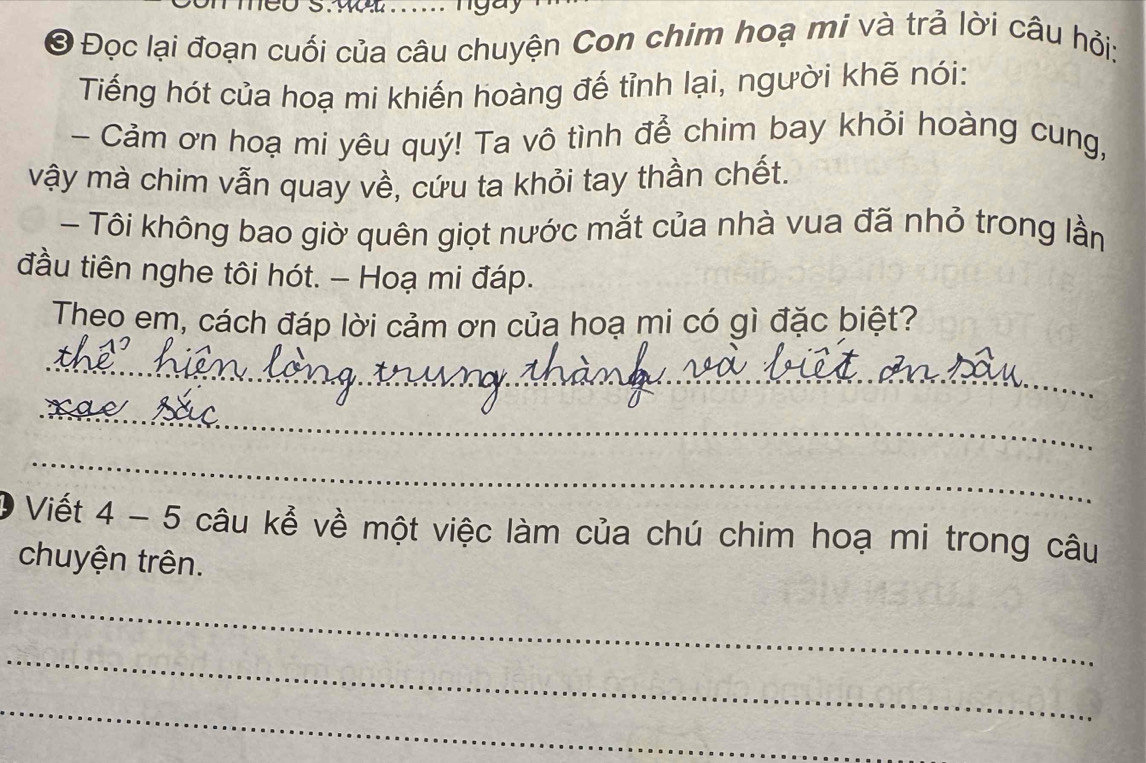 ③ Đọc lại đoạn cuối của câu chuyện Con chim hoạ mi và trả lời câu hỏi:
Tiếng hót của hoạ mi khiến hoàng đế tỉnh lại, người khẽ nói:
– Cảm ơn hoạ mi yêu quý! Ta vô tình để chim bay khỏi hoàng cung,
vậy mà chim vẫn quay về, cứu ta khỏi tay thần chết.
– Tôi không bao giờ quên giọt nước mắt của nhà vua đã nhỏ trong lần
đầu tiên nghe tôi hót. – Hoạ mi đáp.
Theo em, cách đáp lời cảm ơn của hoạ mi có gì đặc biệt?
thể hiện lòng trung thành và biết ơn sâu
sắc
Viết 4 – 5 câu kể về một việc làm của chú chim hoạ mi trong câu
chuyện trên.